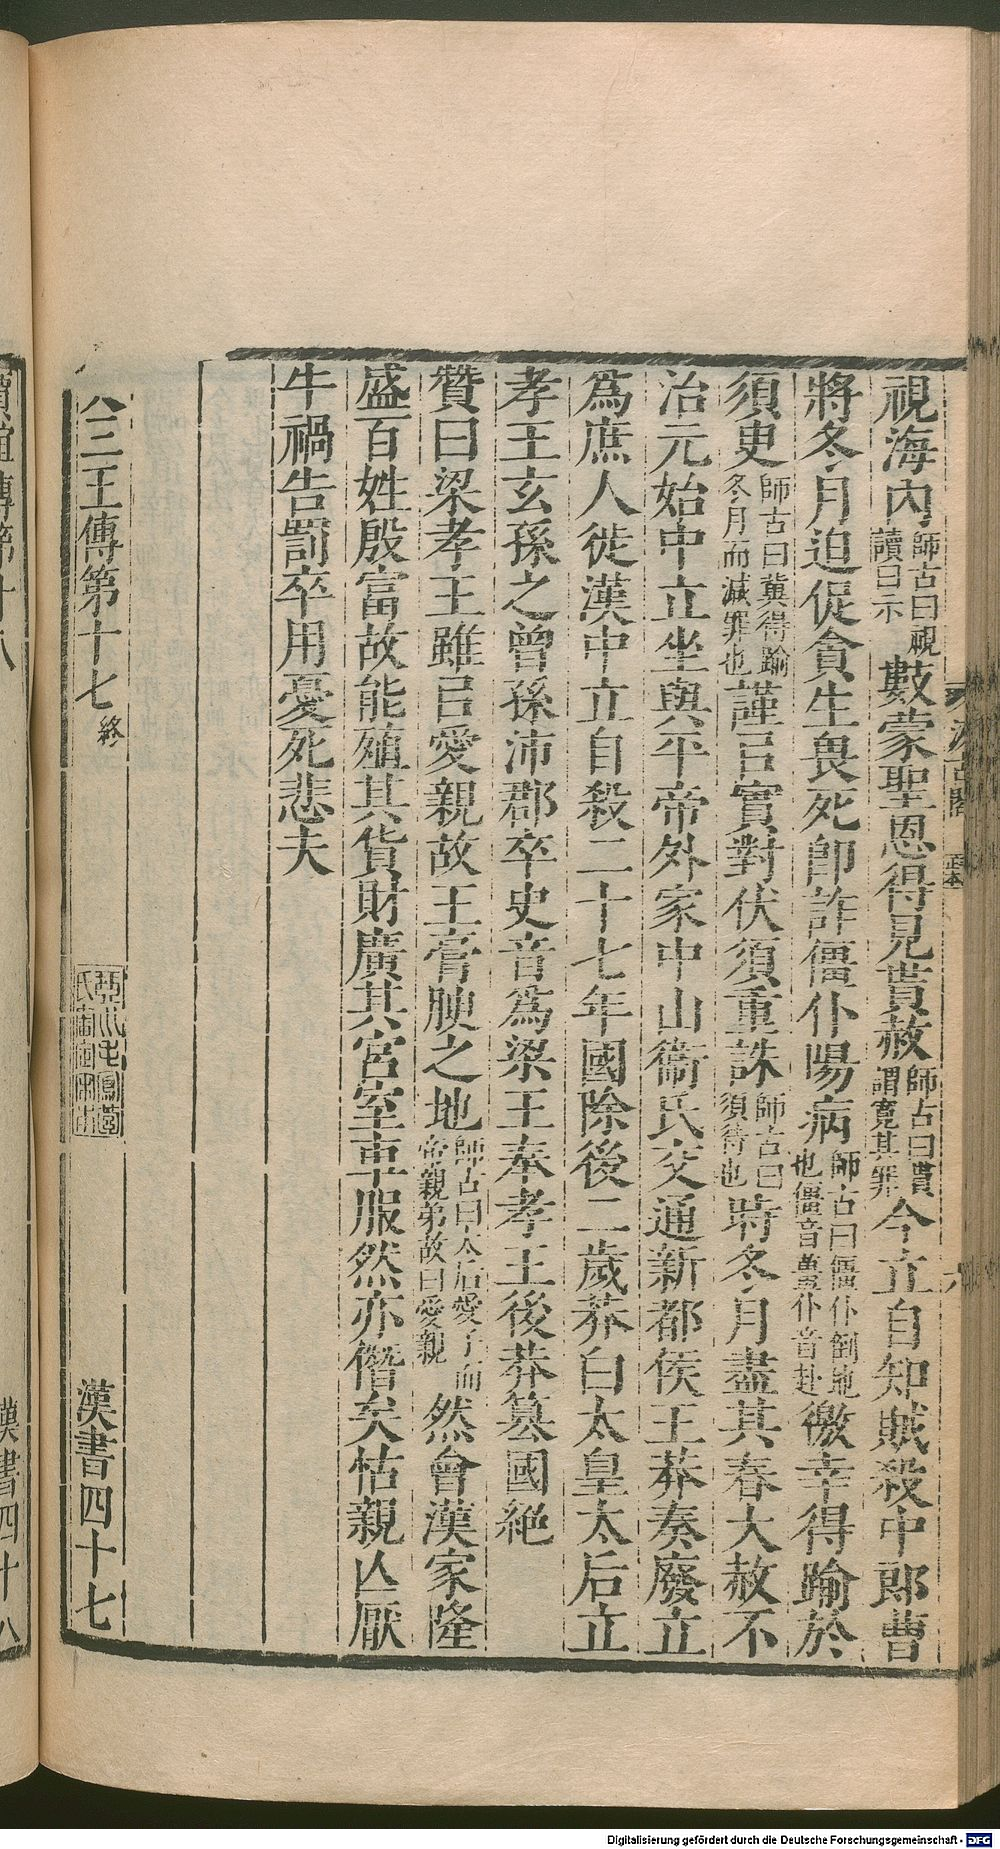 視海內師古曰視讀曰示數蒙聖恩得見貰赦師古曰貰謂寬其罪今立自知賊殺中郎曹
將冬月迫促貪生畏死卽詐僵仆陽病師古曰僵仆倒地也僵音薑仆音赴徼幸得踰於
須臾師古曰冀得踰冬月而減罪也謹㠯實對伏須重誅師古曰須待也時冬月盡其春大赦不
治元始中立坐與平帝外家中山衞氏交通新都侯王莽奏廢立
爲庶人徙漢中立自殺二十七年國除後二歲莽白太皇太后立
孝王玄孫之曾孫沛郡卒史音爲梁王奉孝王後莽篡國絕
贊曰梁孝王雖㠯愛親故王膏腴之地師古曰太后愛子而帝親弟故曰愛親然會漢家隆
盛百姓殷富故能殖其貨財廣其宮室車服然亦僭矣怙親亾厭
牛禍告罰卒用憂死悲夫
八三王傳第十七終
漢書四十七
傳第十八
漢書四十八
Digitalisierung gefördert durch die Deutsche Forschungsgemeinschaft - DFG